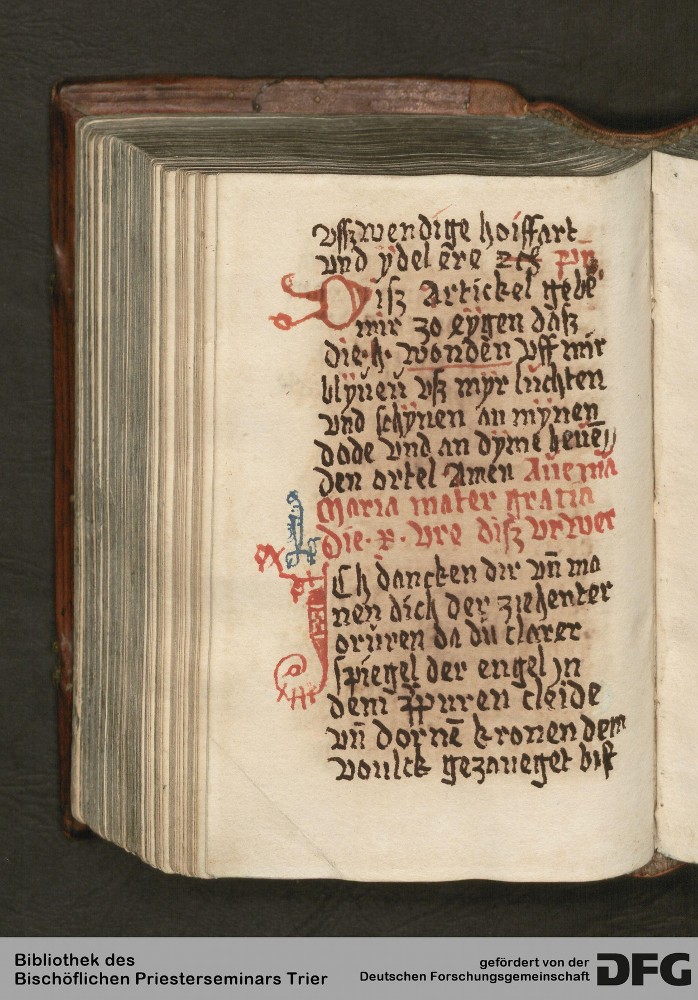 vsszwendige hoiffart
vnd ÿdel ere
Disz Artickel gebē
mir zo eÿgen dasz
die .h. wonden vff mir
blÿuen vsz myr luchten
vnd schÿnen an mÿnen
dode vnd an dyme heuē//
den ortel Amen Aue ma
Maria mater gratia
Die .x. vre disz vrwer
ICh dancken dir vn̄ ma
nen dich der ziehenter
oruren da du clarer
spiegel der engel jn
dem ppuren cleide
vn̄ dornē kronen dem
voulck gezaueget bist
Bibliothek des
Bischöflichen Priesterseminars Trier
gefördert von der
Deutschen Forschungsgemeinschaft DFG